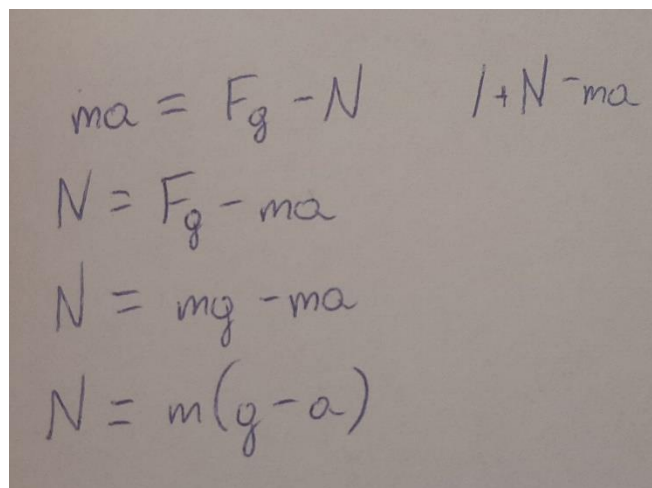 ma = Fg - N /+N -ma
N = Fg - ma
N = mg - ma
N = m(g-a)